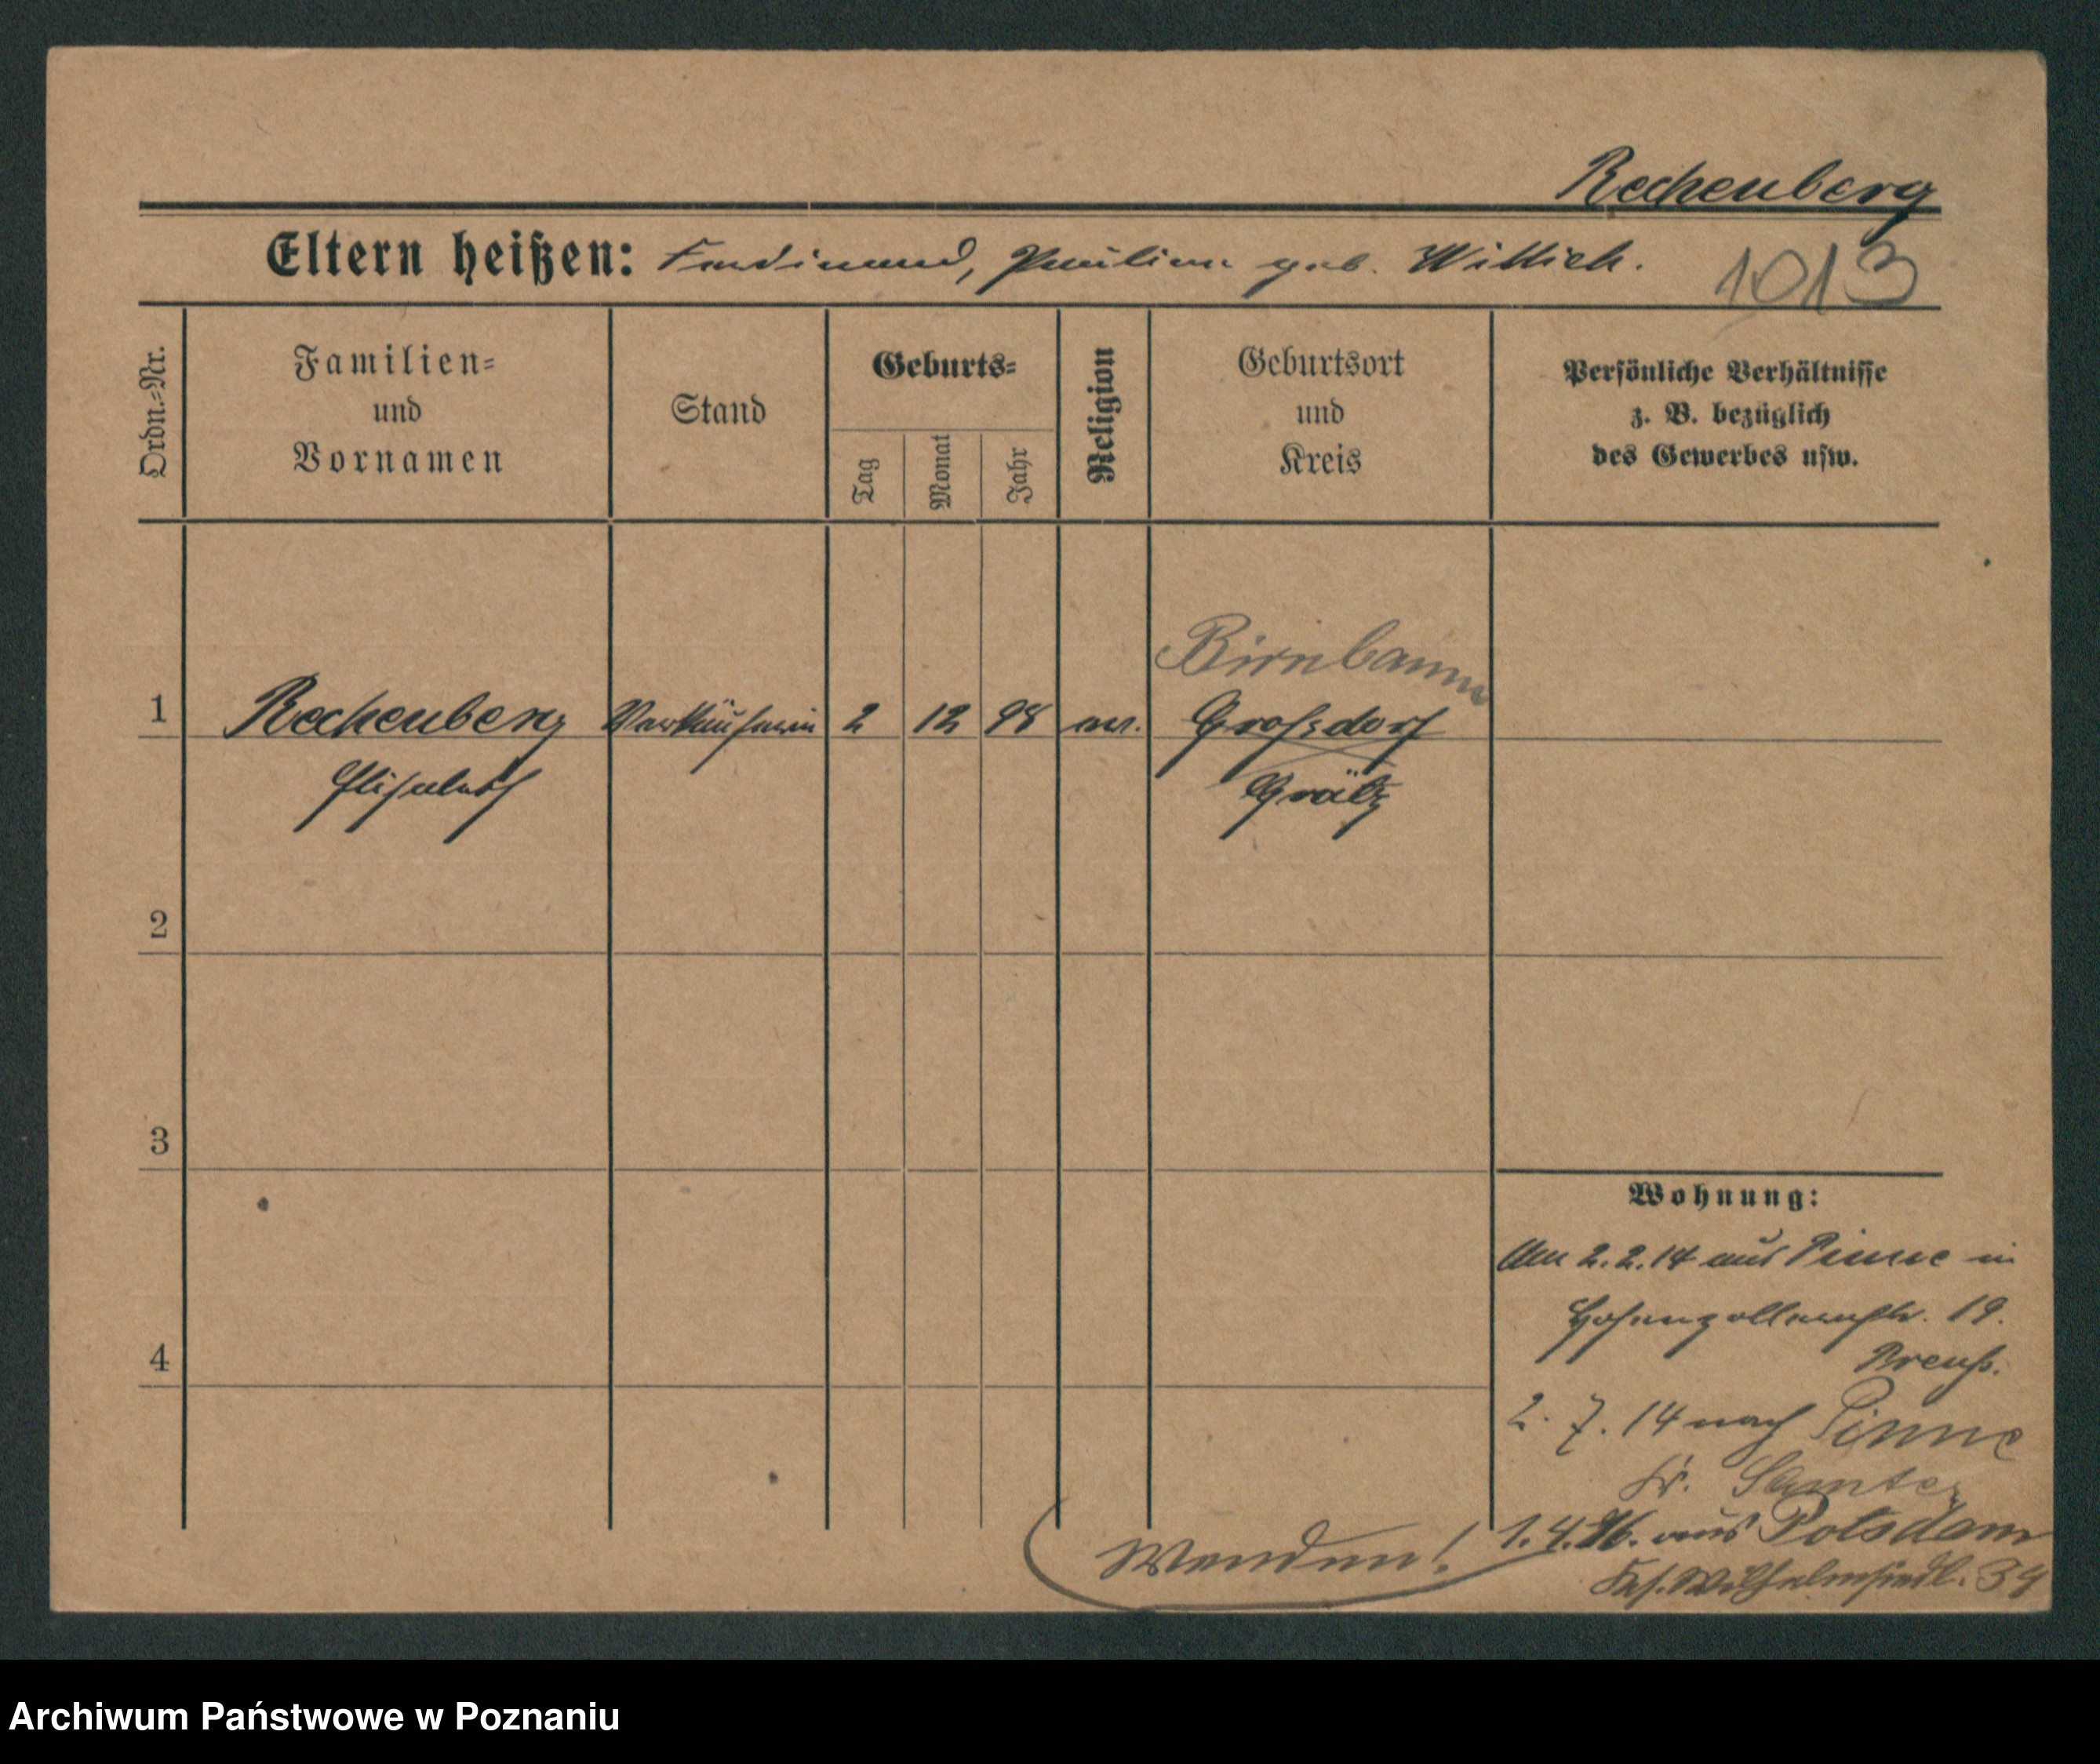 Rechenberg
Eltern heißen: Ferdinand, Pauline geb. Wittich.
1013
Ordn.-Nr.
Familien-
und
Vornamen
Stand
Geburts-
Tag
Monat
Jahr
Religion
Geburtsort
und
Kreis
Persönliche Verhältnisse
z. B. bezüglich
des Gewerbes usw.
Birnbaum
1 Rechenberg Verkäuferin 2 12 98 ev. Grofsdorf
Elisabeth Grätz
2
3
4
Wohnung:
Am 2.2.14 aus Pinne in
Hohenzollernstr. 19.
Preuß.
2. 7. 14 nach Pinne
Kr. Samter
1.4.16. aus Potsdam
Wilhelmstr. 34
Wenden!
Archiwum Państwowe w Poznaniu